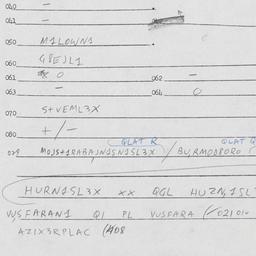 040 –
041 –
050 M1LOWN1
060 G8EJL1
061 0 062 –
063 – 064 0
070 S+VEML3X
080 +/–
QLAT R QLAT Q
029 MOJS+1RABAJN1SN1SL3X / BU,RMODBORO
HURN1SL3X xx QGL HUZN,1SL
V/S FARAN1 QI PL VUSFARA (/021010
AZIX3RPLAC (/408